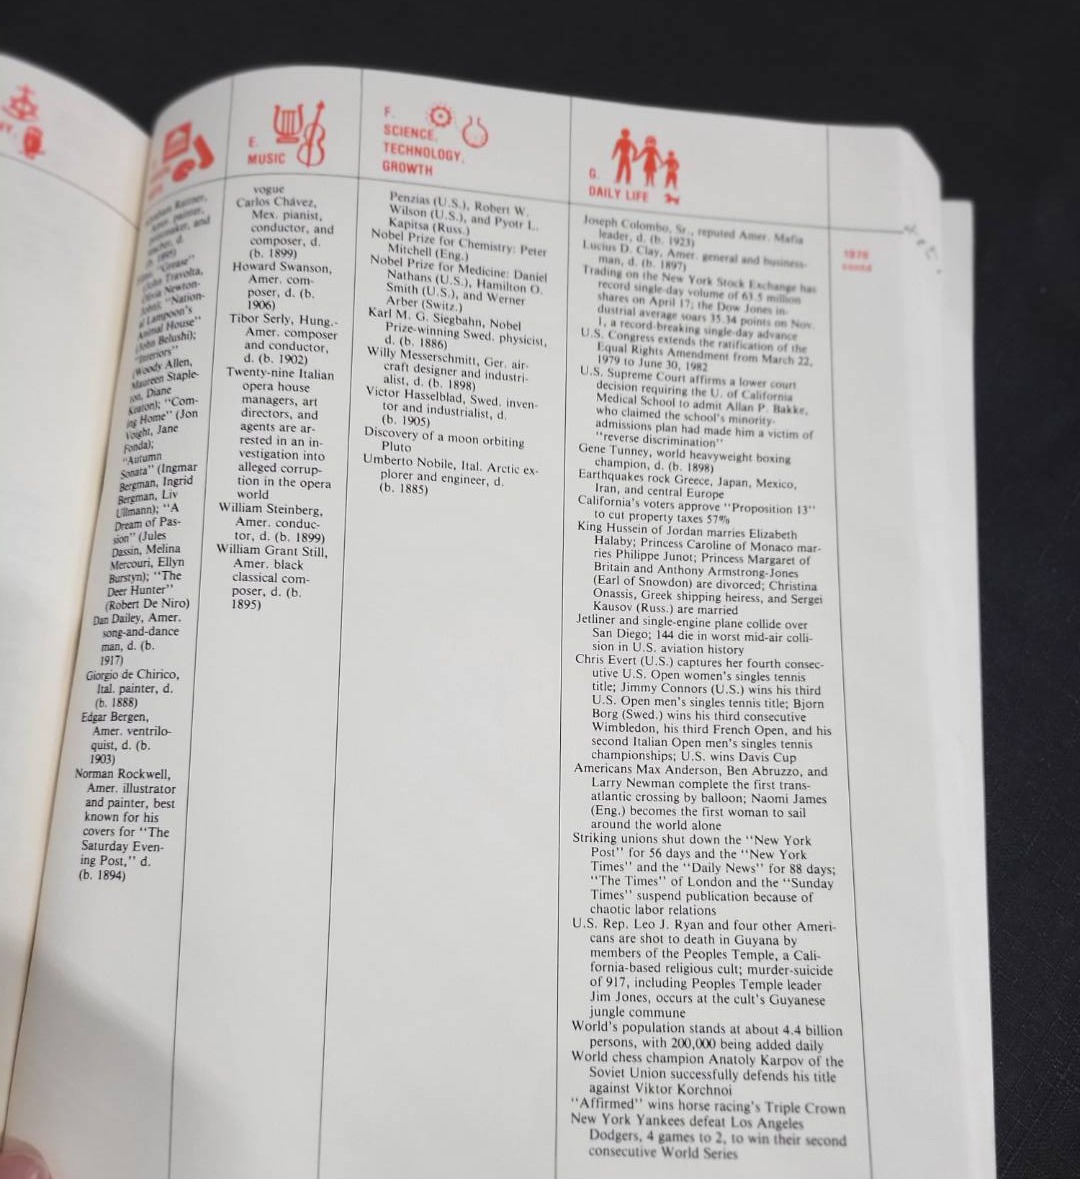 E.
MUSIC
vogue
Carlos Chávez,
Mex. pianist,
conductor, and
composer, d.
(b. 1899)
Howard Swanson,
Amer. com-
poser, d. (b.
1906)
Tibor Serly, Hung.-
Amer. composer
and conductor,
d. (b. 1902)
Twenty-nine Italian
opera house
managers, art
directors, and
agents are ar-
rested in an in-
vestigation into
alleged corrup-
tion in the opera
world
William Steinberg,
Amer. conduc-
tor, d. (b. 1899)
William Grant Still,
Amer. black
classical com-
poser, d. (b.
1895)
F.
SCIENCE,
TECHNOLOGY,
GROWTH
Penzias (U.S.), Robert W.
Wilson (U.S.), and Pyotr L.
Kapitsa (Russ.)
Nobel Prize for Chemistry: Peter
Mitchell (Eng.)
Nobel Prize for Medicine: Daniel
Nathans (U.S.), Hamilton O.
Smith (U.S.), and Werner
Arber (Switz.)
Karl M. G. Siegbahn, Nobel
Prize-winning Swed. physicist,
d. (b. 1886)
Willy Messerschmitt, Ger. air-
craft designer and industri-
alist, d. (b. 1898)
Victor Hasselblad, Swed. inven-
tor and industrialist, d.
(b. 1905)
Discovery of a moon orbiting
Pluto
Umberto Nobile, Ital. Arctic ex-
plorer and engineer, d.
(b. 1885)
G.
DAILY LIFE
Joseph Colombo, Sr., reputed Amer. Mafia
leader, d. (b. 1923)
Lucius D. Clay, Amer. general and business-
man, d. (b. 1897)
Trading on the New York Stock Exchange has
record single-day volume of 63.5 million
shares on April 17; the Dow Jones in-
dustrial average soars 35.34 points on Nov.
1, a record-breaking single-day advance
U.S. Congress extends the ratification of the
Equal Rights Amendment from March 22,
1979 to June 30, 1982
U.S. Supreme Court affirms a lower court
decision requiring the U. of California
Medical School to admit Allan P. Bakke,
who claimed the school's minority-
admissions plan had made him a victim of
"reverse discrimination"
Gene Tunney, world heavyweight boxing
champion, d. (b. 1898)
Earthquakes rock Greece, Japan, Mexico,
Iran, and central Europe
California's voters approve "Proposition 13"
to cut property taxes 57%
King Hussein of Jordan marries Elizabeth
Halaby; Princess Caroline of Monaco mar-
ries Philippe Junot; Princess Margaret of
Britain and Anthony Armstrong-Jones
(Earl of Snowdon) are divorced; Christina
Onassis, Greek shipping heiress, and Sergei
Kausov (Russ.) are married
Jetliner and single-engine plane collide over
San Diego; 144 die in worst mid-air colli-
sion in U.S. aviation history
Chris Evert (U.S.) captures her fourth consec-
utive U.S. Open women's singles tennis
title; Jimmy Connors (U.S.) wins his third
U.S. Open men's singles tennis title; Bjorn
Borg (Swed.) wins his third consecutive
Wimbledon, his third French Open, and his
second Italian Open men's singles tennis
championships; U.S. wins Davis Cup
Americans Max Anderson, Ben Abruzzo, and
Larry Newman complete the first trans-
atlantic crossing by balloon; Naomi James
(Eng.) becomes the first woman to sail
around the world alone
Striking unions shut down the "New York
Post" for 56 days and the "New York
Times" and the "Daily News" for 88 days;
"The Times" of London and the "Sunday
Times" suspend publication because of
chaotic labor relations
U.S. Rep. Leo J. Ryan and four other Ameri-
cans are shot to death in Guyana by
members of the Peoples Temple, a Cali-
fornia-based religious cult; murder-suicide
of 917, including Peoples Temple leader
Jim Jones, occurs at the cult's Guyanese
jungle commune
World's population stands at about 4.4 billion
persons, with 200,000 being added daily
World chess champion Anatoly Karpov of the
Soviet Union successfully defends his title
against Viktor Korchnoi
"Affirmed" wins horse racing's Triple Crown
New York Yankees defeat Los Angeles
Dodgers, 4 games to 2, to win their second
consecutive World Series
1978
contd
"Grease"
Travolta,
Newton-
"Nation-
Lampoon's
Animal House"
(John Belushi);
"Interiors"
(Woody Allen,
Maureen Staple-
ton, Diane
Keaton); "Com-
ing Home" (Jon
Voight, Jane
Fonda);
"Autumn
Sonata" (Ingmar
Bergman, Ingrid
Bergman, Liv
Ullmann); "A
Dream of Pas-
sion" (Jules
Dassin, Melina
Mercouri, Ellyn
Burstyn); "The
Deer Hunter"
(Robert De Niro)
Dan Dailey, Amer.
song-and-dance
man, d. (b.
1917)
Giorgio de Chirico,
Ital. painter, d.
(b. 1888)
Edgar Bergen,
Amer. ventrilo-
quist, d. (b.
1903)
Norman Rockwell,
Amer. illustrator
and painter, best
known for his
covers for "The
Saturday Even-
ing Post," d.
(b. 1894)